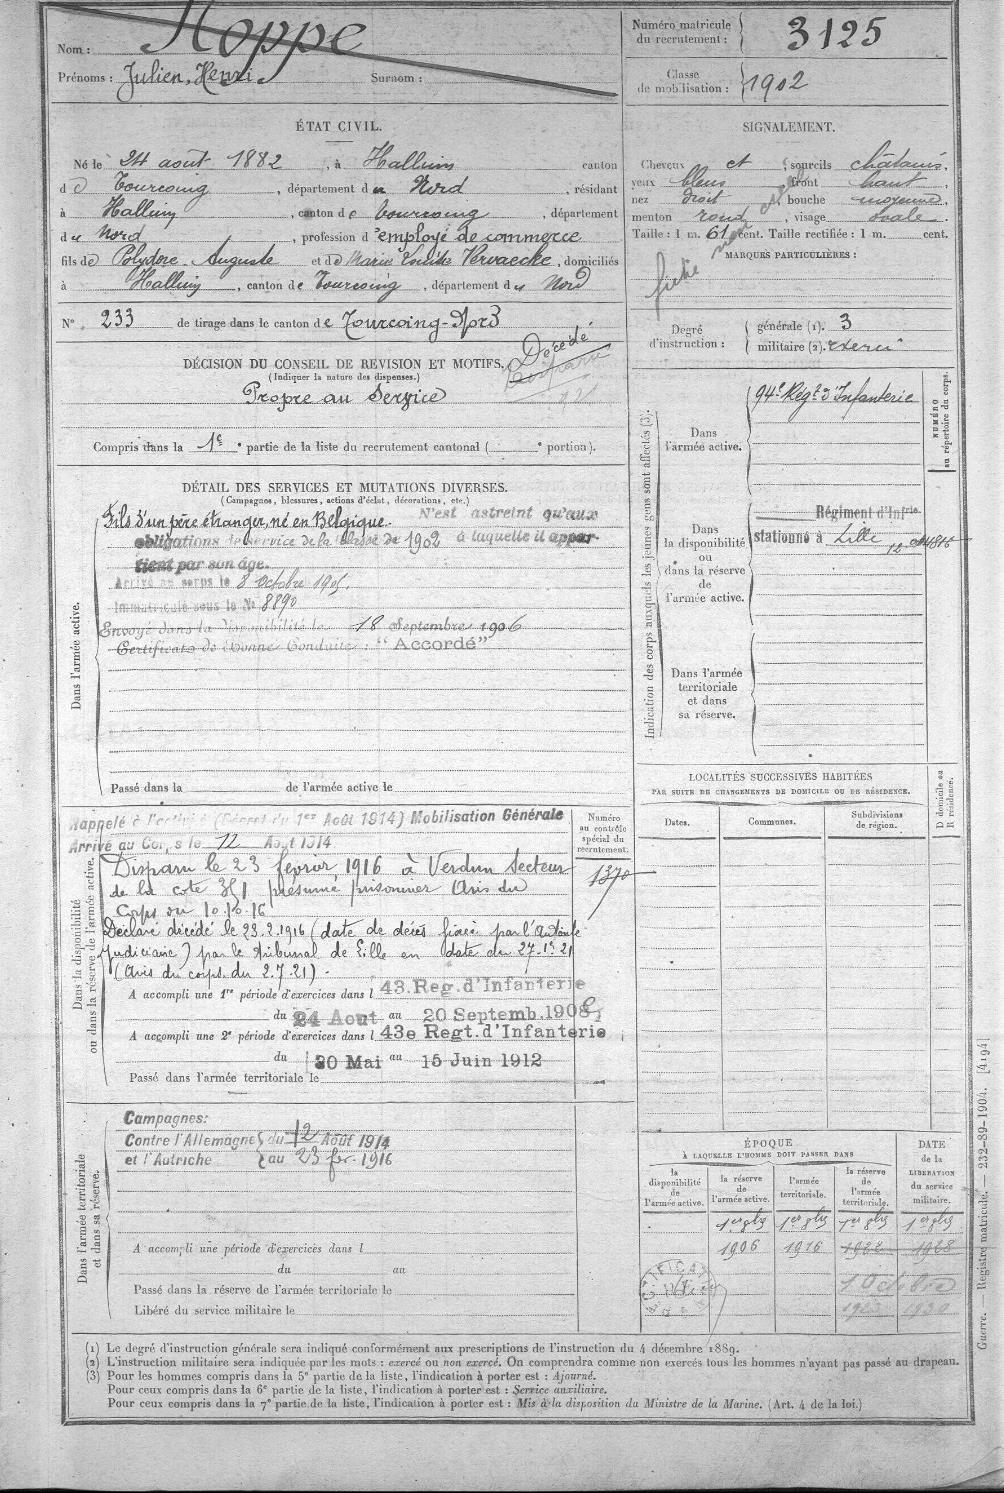 Nom : Hoppe
Prénoms : Julien, Henri. Surnom :
Numéro matricule du recrutement : 3125
Classe de mobilisation : 1902
ÉTAT CIVIL.
Né le 24 août 1882, à Halluin canton
d e Tourcoing, département d u Nord, résidant
à Halluin, canton d e Tourcoing, département
d u Nord, profession d'employé de commerce
fils de Polydore Auguste et de Marie Vervaecke, domiciliés
à Halluin, canton d e Tourcoing, département d u Nord
N° 233 de tirage dans le canton d e Tourcoing-Nord
SIGNALEMENT.
Cheveux et sourcils châtains,
yeux bleus, front haut,
nez droit, bouche moyenne,
menton rond, visage ovale.
Taille : 1 m. 61 cent. Taille rectifiée : 1 m. cent.
MARQUES PARTICULIÈRES :
fiche
Degré d'instruction :
générale (1). 3
militaire (2). exercé
DÉCISION DU CONSEIL DE REVISION ET MOTIFS.
(Indiquer la nature des dispenses.)
Décédé
Disparu
Propre au Service
Compris dans la 1e partie de la liste du recrutement cantonal ( e portion).
DÉTAIL DES SERVICES ET MUTATIONS DIVERSES.
(Campagnes, blessures, actions d'éclat, décorations, etc.)
Dans l'armée active.
Fils d'un père étranger, né en Belgique. N'est astreint qu'aux
obligations de service de la classe de 1902 à laquelle il appar-
tient par son âge.
Arrivé au corps le 8 octobre 1905.
Immatriculé sous le No 8890
Envoyé dans la disponibilité le 18 Septembre 1906
Certificat de Bonne Conduite : "Accordé"
Passé dans la de l'armée active le
Indication des corps auxquels les jeunes gens sont affectés (3).
Dans l'armée active.
94e Régt d'Infanterie
NUMÉRO au répertoire du corps.
Dans la disponibilité ou dans la réserve de l'armée active.
Régiment d'Infrie
stationné à Lille
Dans l'armée territoriale et dans sa réserve.
Dans la disponibilité ou dans la réserve de l'armée active.
Rappelé à l'activité (Décret du 1er Août 1914) Mobilisation Générale
Arrivé au Corps le 12 Août 1914
Disparu le 23 février 1916 à Verdun Secteur
de la cote 351 présumé prisonnier Avis du
Corps du 10.10.16
Déclaré décédé le 23.2.1916 (date de décès fixée par l'Autorité
judiciaire) par le tribunal de Lille en date du 27-1-21
(Avis du corps du 2.7.21).
A accompli une 1re période d'exercices dans l 43. Reg. d'Infanterie
du 24 Aout au 20 Septemb. 1908
A accompli une 2e période d'exercices dans l 43e Regt. d'Infanterie
du 30 Mai au 15 Juin 1912
Passé dans l'armée territoriale le
Numéro au contrôle spécial du recrutement.
1370
LOCALITÉS SUCCESSIVES HABITÉES
PAR SUITE DE CHANGEMENTS DE DOMICILE OU DE RÉSIDENCE.
Dates. Communes. Subdivisions de région. D domicile ou R résidence.
Dans l'armée territoriale et dans sa réserve.
Campagnes:
Contre l'Allemagne du 12 Août 1914
et l'Autriche au 23 fev. 1916
A accompli une période d'exercices dans l
du au
Passé dans la réserve de l'armée territoriale le
Libéré du service militaire le
ÉPOQUE
À LAQUELLE L'HOMME DOIT PASSER DANS
DATE de la LIBÉRATION du service militaire.
la disponibilité de l'armée active. la réserve de l'armée active. l'armée territoriale. la réserve de l'armée territoriale.
1er 8bre 1er 8bre 1er 8bre 1er 8bre
1906 1916 1922 1928
1 Octobre
(1) Le degré d'instruction générale sera indiqué conformément aux prescriptions de l'instruction du 4 décembre 1889.
(2) L'instruction militaire sera indiquée par les mots : exercé ou non exercé. On comprendra comme non exercés tous les hommes n'ayant pas passé au drapeau.
(3) Pour les hommes compris dans la 5e partie de la liste, l'indication à porter est : Ajourné.
Pour ceux compris dans la 6e partie de la liste, l'indication à porter est : Service auxiliaire.
Pour ceux compris dans la 7e partie de la liste, l'indication à porter est : Mis à la disposition du Ministre de la Marine. (Art. 4 de la loi.)
Guerre. — Registre matricule. — 232-89-1904. [4194]